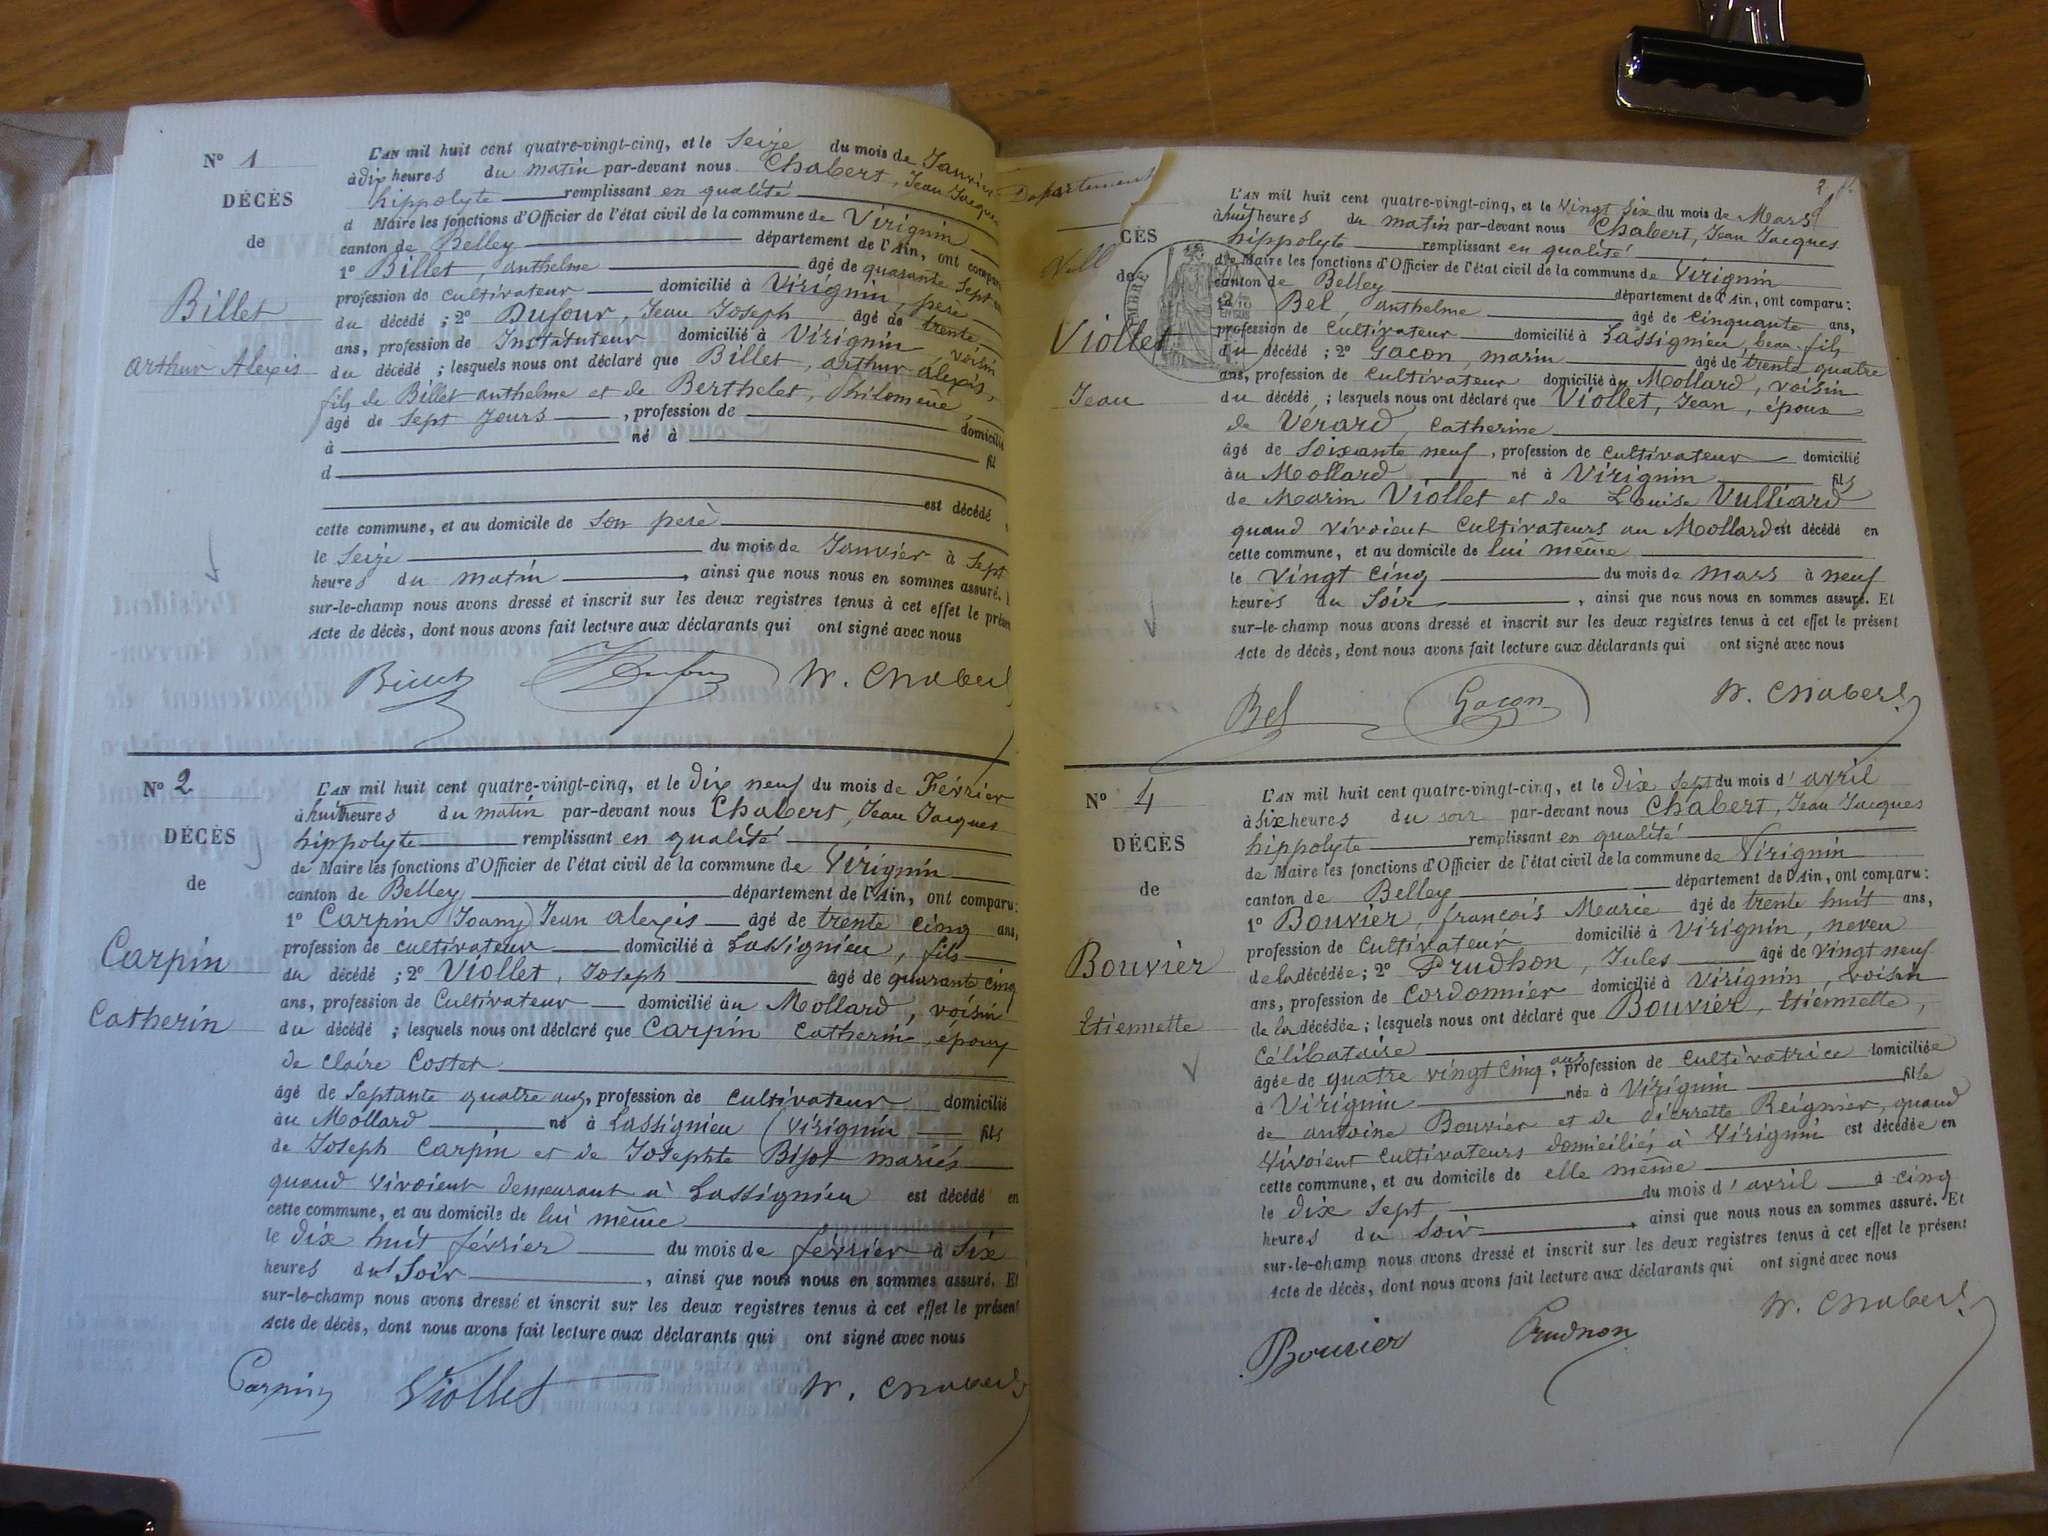 N° 1
DÉCÈS
de
Billet
Arthur Alexis
L'AN mil huit cent quatre-vingt-cinq, et le Seize du mois de Janvier
à dix heures du matin par-devant nous Chabert, Jean Jacques
hippolyte remplissant en qualité
d Maire les fonctions d'Officier de l'état civil de la commune de Virignin
canton de Belley département de l'Ain, ont comparu
1° Billet, anthelme âgé de quarante sept
profession de cultivateur domicilié à Virignin, père
du décédé ; 2° Dufour, Jean Joseph âgé de trente
ans, profession de Instituteur domicilié à Virignin voisin
du décédé ; lesquels nous ont déclaré que Billet, arthur alexis,
fils de Billet anthelme et de Berthelet, Philomène,
âgé de Sept Jours , profession de domicilié
à né à fil
d
est décédé
cette commune, et au domicile de Son père
le Seize du mois de Janvier à Sept
heures du matin , ainsi que nous nous en sommes assuré.
sur-le-champ nous avons dressé et inscrit sur les deux registres tenus à cet effet le présent
Acte de décès, dont nous avons fait lecture aux déclarants qui ont signé avec nous
Billet Dufour H. Chabert
N° 2
DÉCÈS
de
Carpin
Catherin
L'AN mil huit cent quatre-vingt-cinq, et le Dix neuf du mois de Février
à huit heures du matin par-devant nous Chabert, Jean Jacques
hippolyte remplissant en qualité
de Maire les fonctions d'Officier de l'état civil de la commune de Virignin
canton de Belley département de l'Ain, ont comparu :
1° Carpin (Joany) Jean alexis âgé de trente cinq ans,
profession de cultivateur domicilié à Lassignieu, fils
du décédé ; 2° Viollet, Joseph âgé de quarante cinq
ans, profession de Cultivateur domicilié au Mollard, voisin
du décédé ; lesquels nous ont déclaré que Carpin Catherin, époux
de Claire Coster
âgé de Septante quatre ans, profession de cultivateur domicilié
au Mollard né à Lassignieu (Virignin fils
de Joseph Carpin et de Josephte Bijot mariés
quand vivoient demeurant à Lassignieu est décédé en
cette commune, et au domicile de lui même
le dix huit février du mois de février à Six
heures du Soir , ainsi que nous nous en sommes assuré. Et
sur-le-champ nous avons dressé et inscrit sur les deux registres tenus à cet effet le présent
Acte de décès, dont nous avons fait lecture aux déclarants qui ont signé avec nous
Carpin Viollet H. Chabert
Département
CÈS
de
Viollet
Jean
L'AN mil huit cent quatre-vingt-cinq, et le Vingt Six du mois de Mars
à huit heures du matin par-devant nous Chabert, Jean Jacques
hippolyte remplissant en qualité
de Maire les fonctions d'Officier de l'état civil de la commune de Virignin
canton de Belley département de l'Ain, ont comparu :
Bel, anthelme âgé de Cinquante ans,
profession de Cultivateur domicilié à Lassignieu, beau-fils
du décédé ; 2° Gacon, marin âgé de trente quatre
ans, profession de Cultivateur domicilié au Mollard, voisin
du décédé ; lesquels nous ont déclaré que Viollet, Jean, époux
de Vérard, Catherine
âgé de Soixante neuf, profession de Cultivateur domicilié
au Mollard né à Virignin fils
de Marin Viollet et de Louise Vulliard
quand vivoient Cultivateurs au Mollard est décédé en
cette commune, et au domicile de lui même
le Vingt Cinq du mois de mars à neuf
heures du Soir , ainsi que nous nous en sommes assuré. Et
sur-le-champ nous avons dressé et inscrit sur les deux registres tenus à cet effet le présent
Acte de décès, dont nous avons fait lecture aux déclarants qui ont signé avec nous
Bel Gacon H. Chabert
N° 4
DÉCÈS
de
Bouvier
Etiennette
L'AN mil huit cent quatre-vingt-cinq, et le Dix Sept du mois d'avril
à Six heures du soir par-devant nous Chabert, Jean Jacques
hippolyte remplissant en qualité
de Maire les fonctions d'Officier de l'état civil de la commune de Virignin
canton de Belley département de l'Ain, ont comparu :
1° Bouvier, françois Marie âgé de trente huit ans,
profession de Cultivateur domicilié à Virignin, neveu
de la décédée ; 2° Prudhon, Jules âgé de Vingt neuf
ans, profession de Cordonnier domicilié à Virignin, voisin
de la décédée ; lesquels nous ont déclaré que Bouvier, Etiennette,
Célibataire
âgée de quatre vingt cinq ans, profession de cultivatrice domiciliée
à Virignin née à Virignin fille
de antoine Bouvier et de Pierrette Reignier, quand
vivoient cultivateurs domiciliés à Virignin est décédée en
cette commune, et au domicile de elle même
le Dix Sept du mois d'avril à cinq
heures du Soir , ainsi que nous nous en sommes assuré. Et
sur-le-champ nous avons dressé et inscrit sur les deux registres tenus à cet effet le présent
Acte de décès, dont nous avons fait lecture aux déclarants qui ont signé avec nous
Bouvier Prudhon H. Chabert